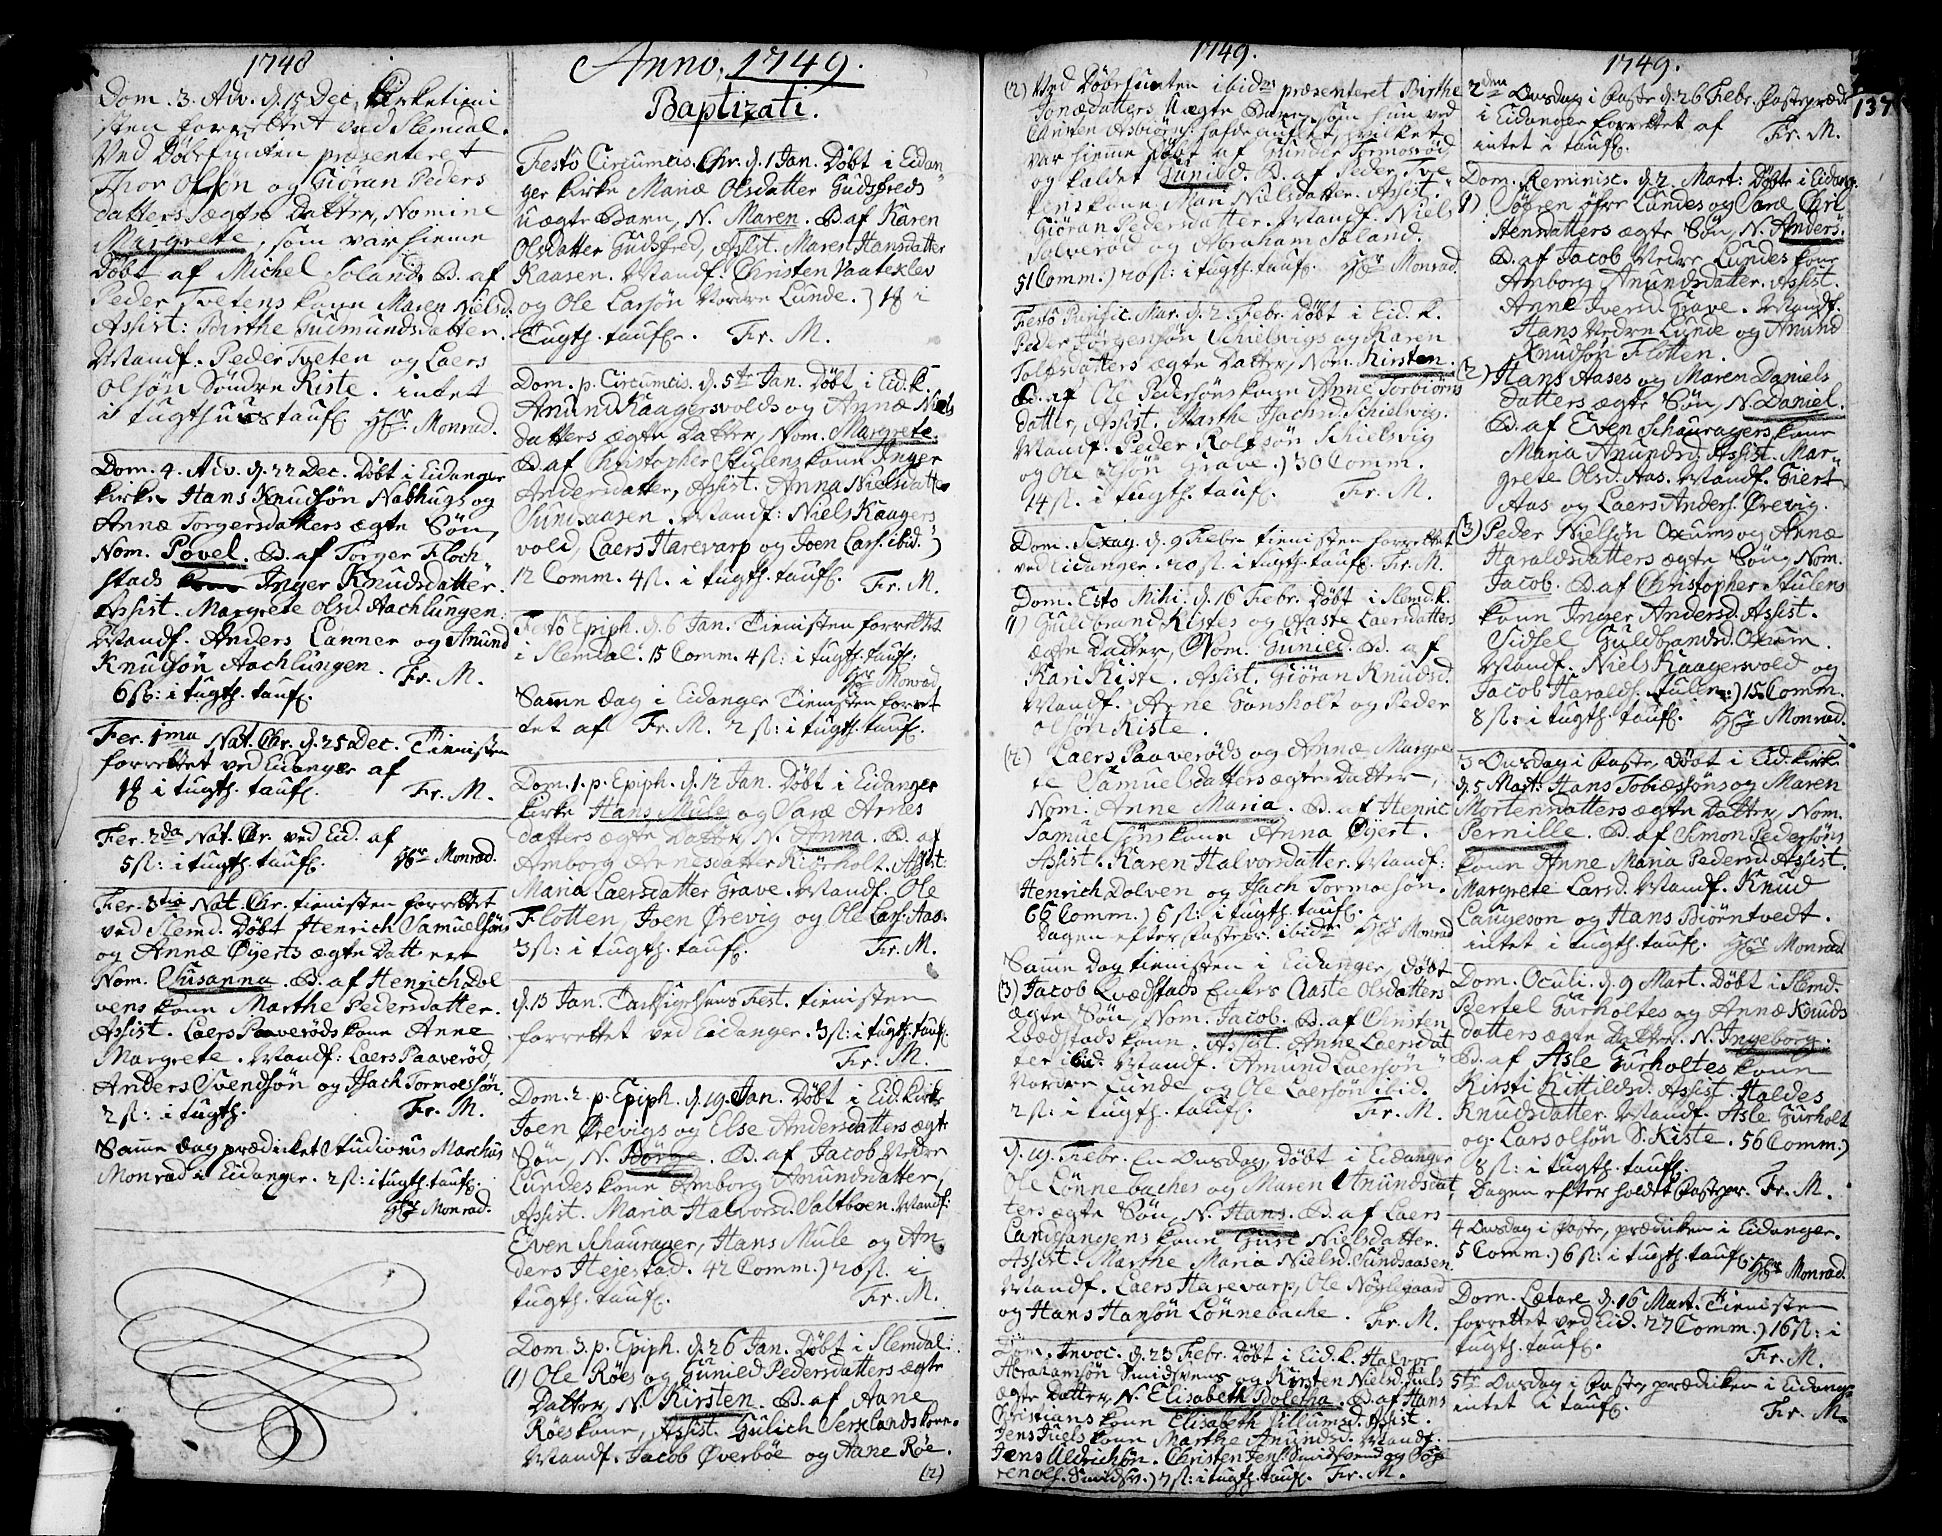 1748
Dom. 3. Adv. d. 15 Dec. Kirketieni
sten forrettet ved Slemdal.
Ved Døbefunten præsenteret
Thor Olsøn og Giøran Peders
datters ægte Datter, Nomine
Margrete, som var hiemme
Døbt af Michel Soland. B. af
Peder Tvetens kone Maren Nielsd.
Assist: Birthe Gudmundsdatter.
Vtandf. Peder Tveten og Laers
Olsøn Søndre Kiste. intet
i tugthuustaufl. Hr. Monrad.
Dom. 4. Adv. d. 22 Dec. Døbt i Eidanger
kirke Hans Knudsøn Nabhugs og
Annæ Torgersdatters ægte Søn,
Nom. Povel. B. af Torger Floch
stads Inger Knudsdatter.
Assist. Margrete Olsd. Aachlungen.
Vtandf. Anders Lanner og Anund
Knudsøn Aachlungen. Fr. M.
6 sk: i tugth. taufl.
Fer. 1ma Nat. Chr. d. 25 Dec. Tienisten
forrettet ved Eidanger af
i tugth. taufl. Fr. M.
Fer. 2da Nat. Chr. ved Eid. af
5 sl: i tugth. taufl. Hr Monrad.
Fer. 3tia Nat. Chr. tienisten forrettet
ved Slemd. Døbt Henrich Samuelsøns
og Annæ Øyerts ægte Datter
Nom. Susanna. B. af Henrich Dol
vens kone Marthe Pedersdatter.
Assist. Laers Paaverøds kone Anne
Margrete. Vtandf: Laers Paaverød
Anders Svendsøn og Isach Tormoesøn.
2 sl: i tugth. Fr. M.
Samme dag prædicket Studiosus Marchus
Monrad i Eidanger. 2 sl: i tugth. taufl.
Hr Monrad.
Anno. 1749.
Baptizati.
Festô Circumcis. Chr. d. 1 Jan. Døbt i Eidan
ger kirke Mariæ Olsdatter Gudsfreds
uægte Barn, N. Maren. B. af Karen
Olsdatter Gudsfred, Assist. Maren Hansdatter
Raasen. Vtandf. Christen Vaateklev
og Ole Larsøn Nordre Lunde.) i
Tugth. taufl. Fr. M.
Dom. p. Circumcis. d. 5te Jan. Døbt i Eid. K.
Anund Kaagersvolds og Annæ Niels
datters ægte Datter, Nom. Margrete.
B. af Christopher Stulens kone Inger
Andersdatter, Assist. Anna Nielsdatter
Sundsaasen. Vtandf: Niels Kaagers
vold, Laers Harevarp og Joen Lars. ibid.)
12 Comm. 4 sl. i tugth. taufl. Fr. M.
Festô Epiph. d. 6 Jan. Tienisten forrettet
i Slemdal. 15 Comm. 4 sl: i tugth. taufl:
Hr Monrad
Samme dag i Eidanger Tienisten forret
tet af Fr. M. 2 sl: i tugth. taufl.
Dom. 1. p. Epiph. d. 12 Jan. Døbt i Eidanger
kirke Hans Mules og Saræ Arnes
datters ægte Datter, N. Anna. B. af
Amborg Arnesdatter Kiørholt. Assist.
Maria Laersdatter Grave. Vtandf. Ole
Flotten, Joen Ørevig og Ole Lars. Aas.
3 sl: i tugth. taufl. Fr. M.
d. 13 Jan. Tacksigelsens Fest. tienisten
forrettet ved Eidanger. 3 sl: i tugth. taufl.
Fr. M.
Dom. 2. p. Epiph. d. 19. Jan. Døbt i Eid. Kirke
Joen Ørevigs og Else Andersdatters ægte
Søn, N. Børge. B. af Jacob Nedre
Lundes kone Amborg Anundsdatter,
Assist. Maria Halvorsd. Saltboen. Vtandf:
Even Schaurager, Hans Mule og An
ders Hejestad. 42 Comm.) 20 sl. i
tugth. taufl. Fr. M.
Dom. 3. p. Epiph. d. 26 Jan. Døbt i Slemdal:
(1) Ole Røes og Gunied Pedersdatters ægte
Datter, N. Kirsten. B. af Aane
Røes kone, Assist. Gulich Serklands kone.
Vtandf. Jacob Øverbøe og Aane Røe.
(2)
1749.
(2) Ved Døbefunten ibidm præsenteret Birthe
Jonædatters Uægte Barn, som hun ved
Christen Asbiørns. hafde auflet, hvilket
var hiemme døbt af Gunder Tormosrød
og kaldet Gunild. B. af Peder Tve
tens kone Mari Nielsdatter. Assist.
Giøran Pedersdatter. Vtandf. Niels
Solverød og Abraham Soland.
51 Comm.) 20 sl: i tugth. taufl. Hr Monrad.
Festô Purific. Mar. d. 2. Febr. Døbt i Eid. k.
Peder Jørgensøn Schielsvigs og Karen
Tolfsdatters ægte Datter, Nom. Kirsten.
B. af Ole Pedersøns kone Anne Torbiørns
datter, Assist. Marthe Isachsd. Schielsvig.
Vtandf. Peder Rolfsøn Schielsvig
og Ole Olsøn Grave.) 30 Comm.
14 sl. i tugth. taufl. Fr. M.
Dom. Sexag. d. 9 Febr. tienisten forrettet
ved Eidanger. 20 sl: i tugth. taufl. Fr. M.
Dom. Esto Mihi. d. 16 Febr. Døbt i Slemd. k.
(1) Guldbrand Kistes og Aaste Laersdatters
ægte Datter, Nom. Gunied. B. af
Kari Kiste. Assist. Giøran Knudsd.
Vtandf. Arne Gunsholt og Peder
Olsøn Kiste.
(2) Laers Paaverøds og Annæ Margre
te Samuelsdatters ægte Datter,
Nom. Anne Maria. B. af Henric
Samuelsøns kone Anna Øyert.
Assist. Karen Halvorsdatter. Vtandf:
Henrich Dolven og Isach Tormoesøn.
66 Comm.) 6 sl: i tugth. taufl.
Dagen efter Fastepr. ibidm Hr Monrad
Samme Dag tienisten i Eidanger, døbt
(3) Jacob Lvædstads Enkes Aaste Olsdatters
ægte Søn, Nom. Jacob. B. af Christen
Lvædstads kone. Assist. Anne Laersdat
ter ibid. Vtandf. Amund Laersøn
Nordre Lunde og Ole Laersøn ibid.
2 sl: i tugth. taufl. Fr. M.
d. 19. Febr. En Onsdag, døbt i Eidanger
Ole Lønnebaches og Maren Anundsdat
ters ægte Søn, N. Hans. B. af Laers
Landgangens kone Guri Nielsdatter.
Assist. Marthe Maria Nielsd. Sundsaasen.
Vtandf. Laers Harevarp, Ole Nøglegaard
og Hans Hansøn Lønnebache. Fr. M.
Dom. Invoc. d. 23 Febr. Døbt i Eid. k. Halvor
Abrahamsøn Smidsvens og Kirsten Nielsd. Juels
ægte Datter, N. Elisabeth Boletha. B. af Hans
Christians kone Elisabeth Villumsd. Assist.
Jens Juels kone Marthe Anundsd. Vtandf.
Jens Uldrichsøn. Christen Jens. Smidsvend og Søf
ren Ols. Smidsv.) 7 sl: i tugth. taufl. Fr. M.
1749.
137
2den Onsdag i Faste d. 26 Febr. Fasteprædk
i Eidanger forrettet af Fr. M.
intet i taufl.
Dom. Reminisc. d. 2. Mart: Døbt i Eidang.
1) Søfren øfre Lundes og Saræ Chri
stensdatters ægte Søn, N. Anders.
B. af Jacob Nedre Lundes kone
Amborg Anundsdatter. Assist.
Anne Iversd. Grave. Vtandf.
Hans Nedre Lunde og Anund
Knudsøn Flotten.
(2) Hans Aases og Maren Daniels
datters ægte Søn, N. Daniel.
B. af Even Schauragers kone
Maria Anundsd. Assist. Mar
grete Olsd. Aas. Vtandf. Giert
Aas og Laers Anders. Ørevig.
(3) Peder Nielsøn Oxums og Annæ
Haraldsdatters ægte Søn, Nom.
Jacob. B. af Christopher Stulens
kone Inger Andersd. Assist.
Sidsel Guldbrandsd. Oxum.
Vtandf. Niels Kaagersvold og
Jacob Haralds. Stulen:) 15 Comm.
8 sl: i tugth. taufl. Hr Monrad.
3 Onsdag i Faste, Døbt i Eid. kirke
d. 5 Mart: Hans Tobiæssøns og Maren
Mortensdatters ægte Datter, Nom.
Pernille. B. af Simon Pedersøns
kone Anne Maria Pedersd. Assist.
Margrete Larsd. Vtandf. Knud
Langeson og Hans Biørntvedt.
intet i tugth. taufl. Hr Monrad
Dom. Oculi. d. 9 Mart. Døbt i Slemd.
Bertel Gurholtes og Annæ Knuds
datters ægte Datter. N. Ingeborg.
B. af Asle Gurholtes kone
Kirsti Kittilsd. Assist. Haldes
Knudsdatter. Vtandf. Asle Gurholt
og Lars Olsøn S. Kiste. 56 Comm.)
8 sl: i tugth. taufl.
Dagen efter holdet Fastepr. Fr. M.
4 Onsdag i Faste, prædiken i Eidanger.
5 Comm.) 6 sl: i tugth. taufl. Hr Monrad.
Dom. Lætare d. 16 Mart. Tienisten
forrettet ved Eid. 27 Comm.) 16 sl: i
tugth. taufl. Fr. M.
5te Onsdag i Faste, prædiken i Eidang.
intet i taufl. Fr. M.